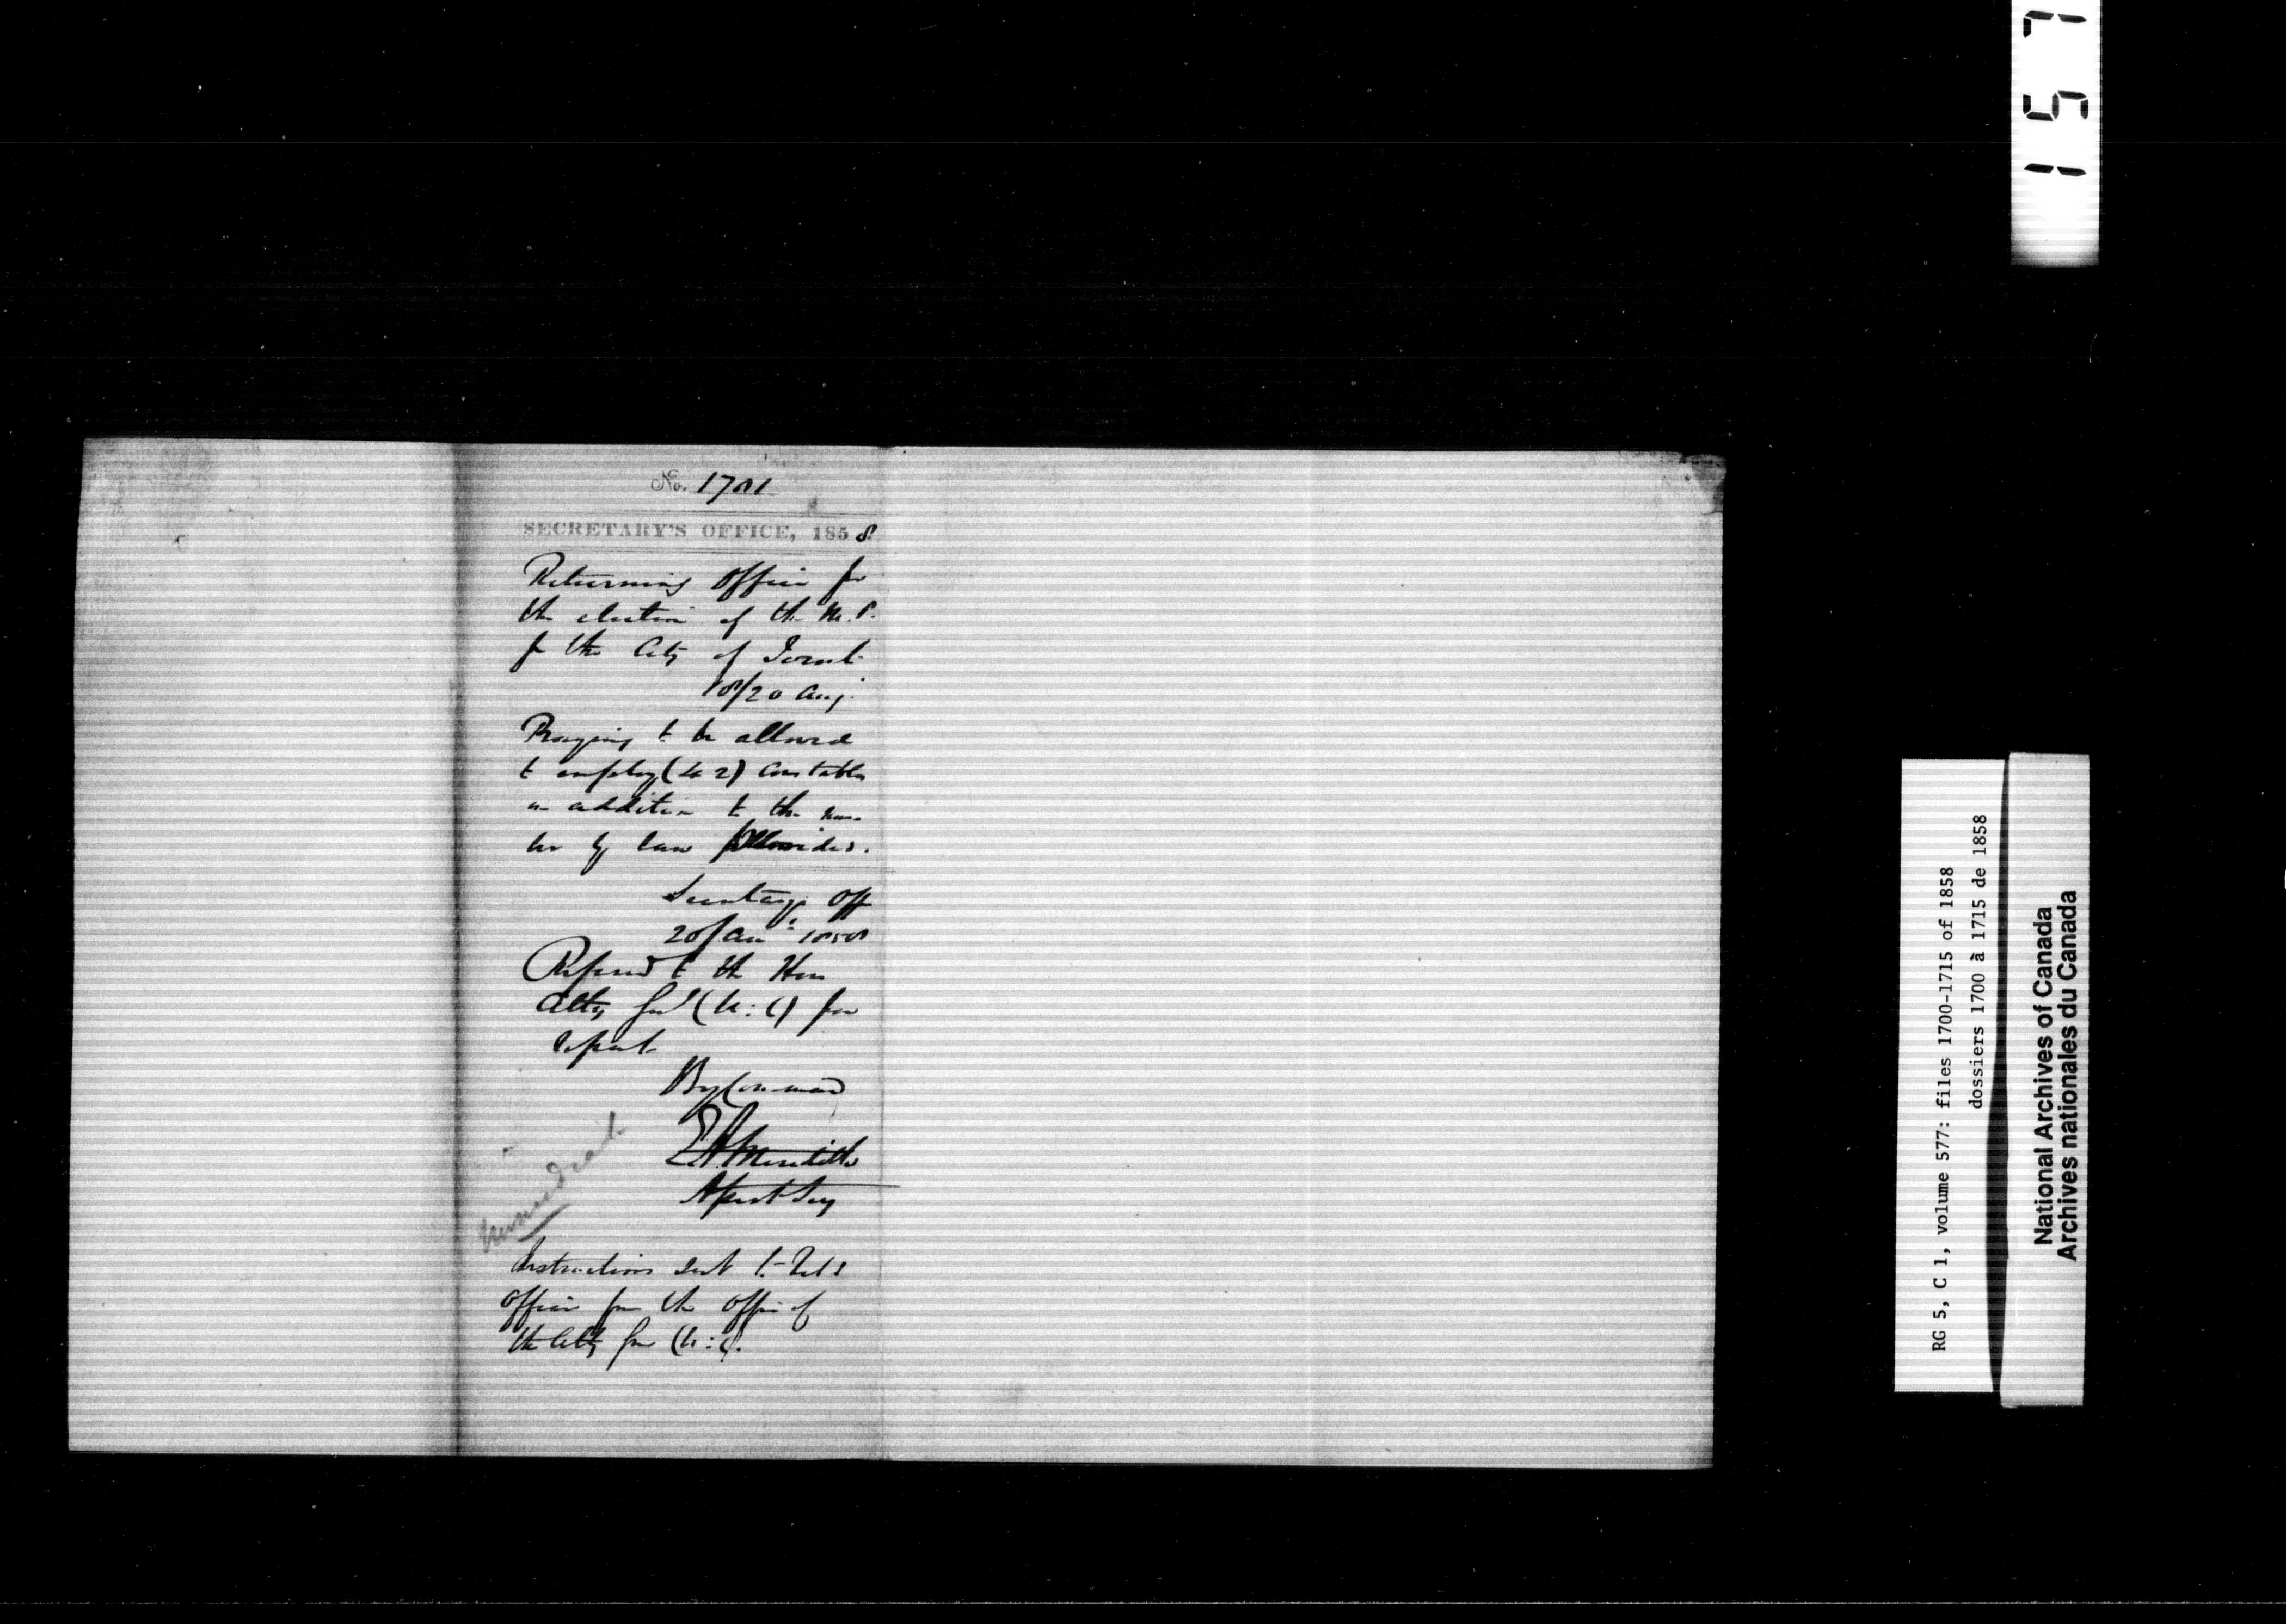 No. 1701
SECRETARY'S OFFICE, 1858
Returning Officer for
the election of the M.P.
for the City of Toront
18/20 Aug.
Praying to be allowed
to employ (42) Constables
in addition to the num-
ber by law provided.
Secretary's Off
20/Au 1858
Referred to the Hon
Atty Genl (U:C) for
report
By Command
E.A. Meredith
Asst Secy
Immediate
Instructions sent to Retg
Officer from the Office of
the Atty Gen (U:C).
157
RG 5, C 1, volume 577: files 1700-1715 of 1858
dossiers 1700 à 1715 de 1858
National Archives of Canada
Archives nationales du Canada